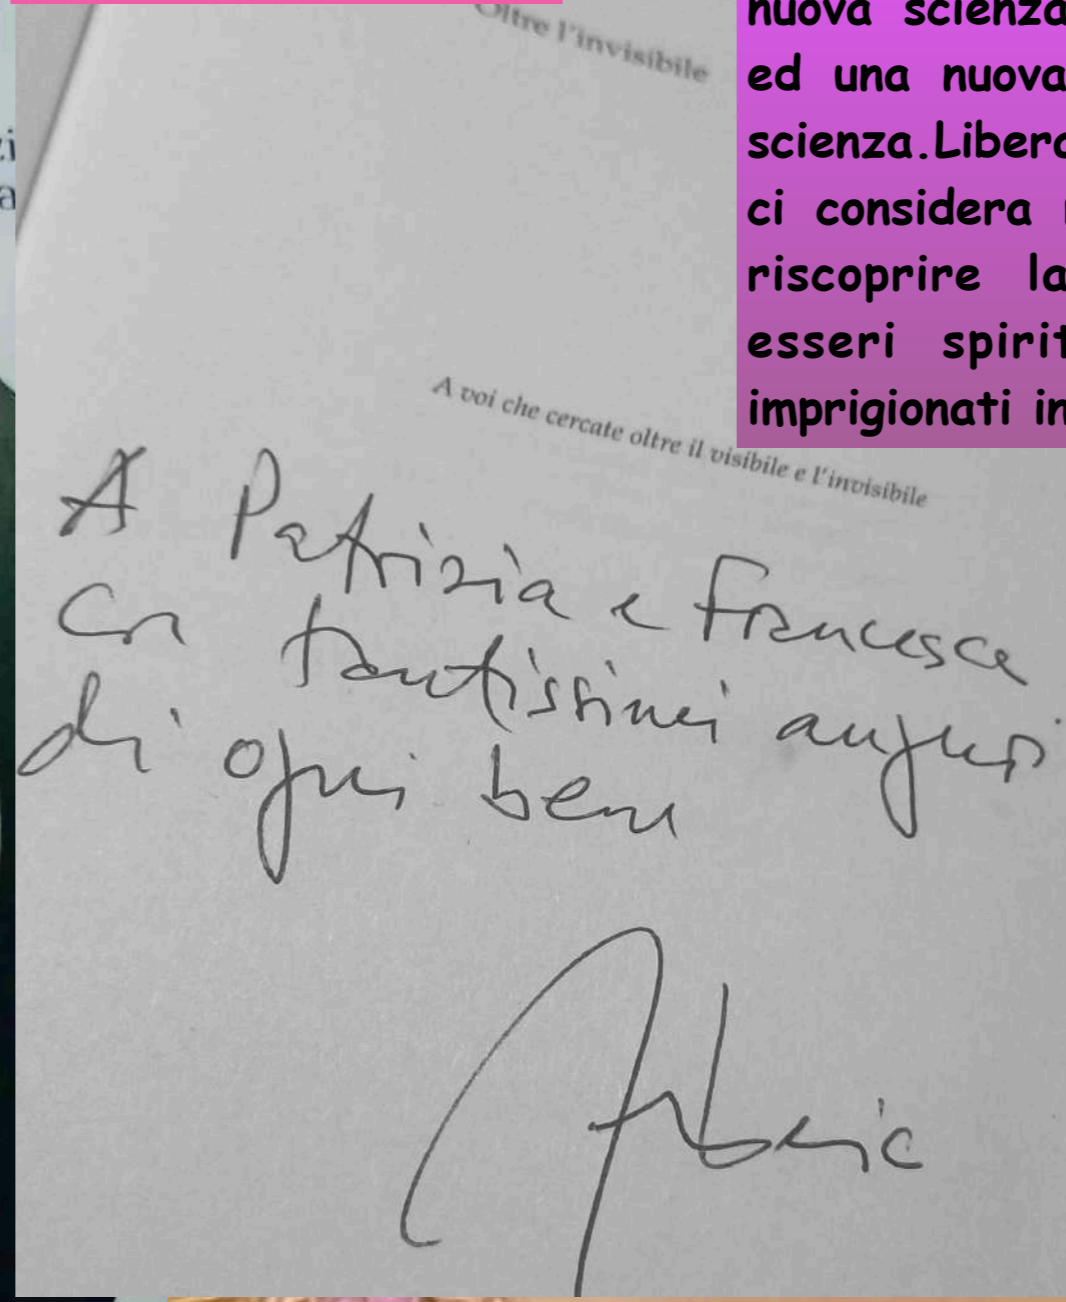 Oltre l'invisibile
nuova scienza
ed una nuova
scienza.Libera
ci considera
riscoprire la
esseri spirit
imprigionati in
A voi che cercate oltre il visibile e l'invisibile
A Patrizia e Francesca
con tantissimi auguri
di ogni bene